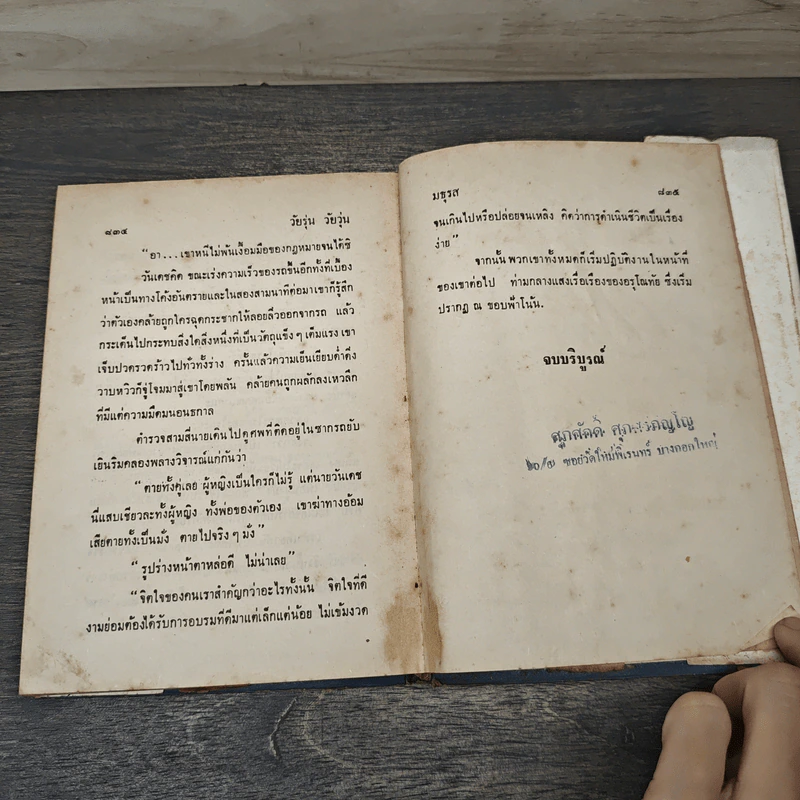 ๘๓๔ วัยรุ่น วัยวุ่น
“อา ... เขาหนีไม่พ้นเงื้อมมือของกฎหมายจนได้ซิ
วันเดชคิด ขณะเร่งความเร็วของรถขึ้นอีกทั้งที่เบื้อง
หน้าเป็นทางโค้งอันตรายและในสองสามนาทีต่อมาเขาก็รู้สึก
ว่าตัวเองคล้ายถูกใครฉุดกระชากให้ลอยลิ่วออกจากรถ แล้ว
กระเด็นไปกระทบสิ่งใดสิ่งหนึ่งที่เป็นวัตถุแข็ง ๆ เต็มแรง เขา
เจ็บปวดรวดร้าวไปทั่วทั้งร่าง ครั้นแล้วความเย็นเยียบด่ำดึ่ง
วาบหวิวก็จู่โจมมาสู่เขาโดยพลัน คล้ายคนถูกผลักลงเหวลึก
ที่มีแต่ความมืดมนอนธกาล
ตำรวจสามสี่นายเดินไปดูศพที่ติดอยู่ในซากรถยับ
เยินริมคลองพลางวิจารณ์แก่กันว่า
“ตายทั้งคู่เลย ผู้หญิงเป็นใครก็ไม่รู้ แต่นายวันเดช
นี่แสบเชียวละทั้งผู้หญิง ทั้งพ่อของตัวเอง เขาฆ่าทางอ้อม
เสียตายทั้งเป็นมั่ง ตายไปจริง ๆ มั่ง”
“รูปร่างหน้าตาหล่อดี ไม่น่าเลย”
“จิตใจของคนเราสำคัญกว่าอะไรทั้งนั้น จิตใจที่ดี
งามย่อมต้องได้รับการอบรมที่ดีมาแต่เล็กแต่น้อย ไม่เข้มงวด
มธุรส ๘๓๕
จนเกินไปหรือปล่อยจนเหลิง คิดว่าการดำเนินชีวิตเป็นเรื่อง
ง่าย”
จากนั้น พวกเขาทั้งหมดก็เริ่มปฏิบัติงานในหน้าที่
ของเขาต่อไป ท่ามกลางแสงเรื่อเรืองของอรุโณทัย ซึ่งเริ่ม
ปรากฏ ณ ขอบฟ้าโน้น.
จบบริบูรณ์
ศุภศักดิ์
ซอยวัดใหม่พิเรนทร์ บางกอกใหญ่